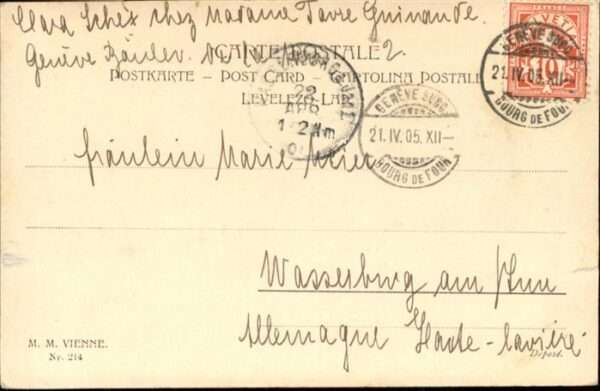 Clara Schex chez Madame Favre Guinande.
Genève Boulev.
CARTE POSTALE 2
POSTKARTE – POST CARD – CARTOLINA POSTALE
LEVELEZO-LAP
HELVETIA
10
GENÈVE SUCC.
21.IV.05.XII–
BOURG DE FOUR
22
APR
1-2 Nm
GENÈVE SUCC.
21.IV.05.XII–
BOURG DE FOUR
Fräulein Marie Meier
Wasserburg am Inn
Allemagne Haute-bavière
M. M. VIENNE.
Nr. 214
Dépost.